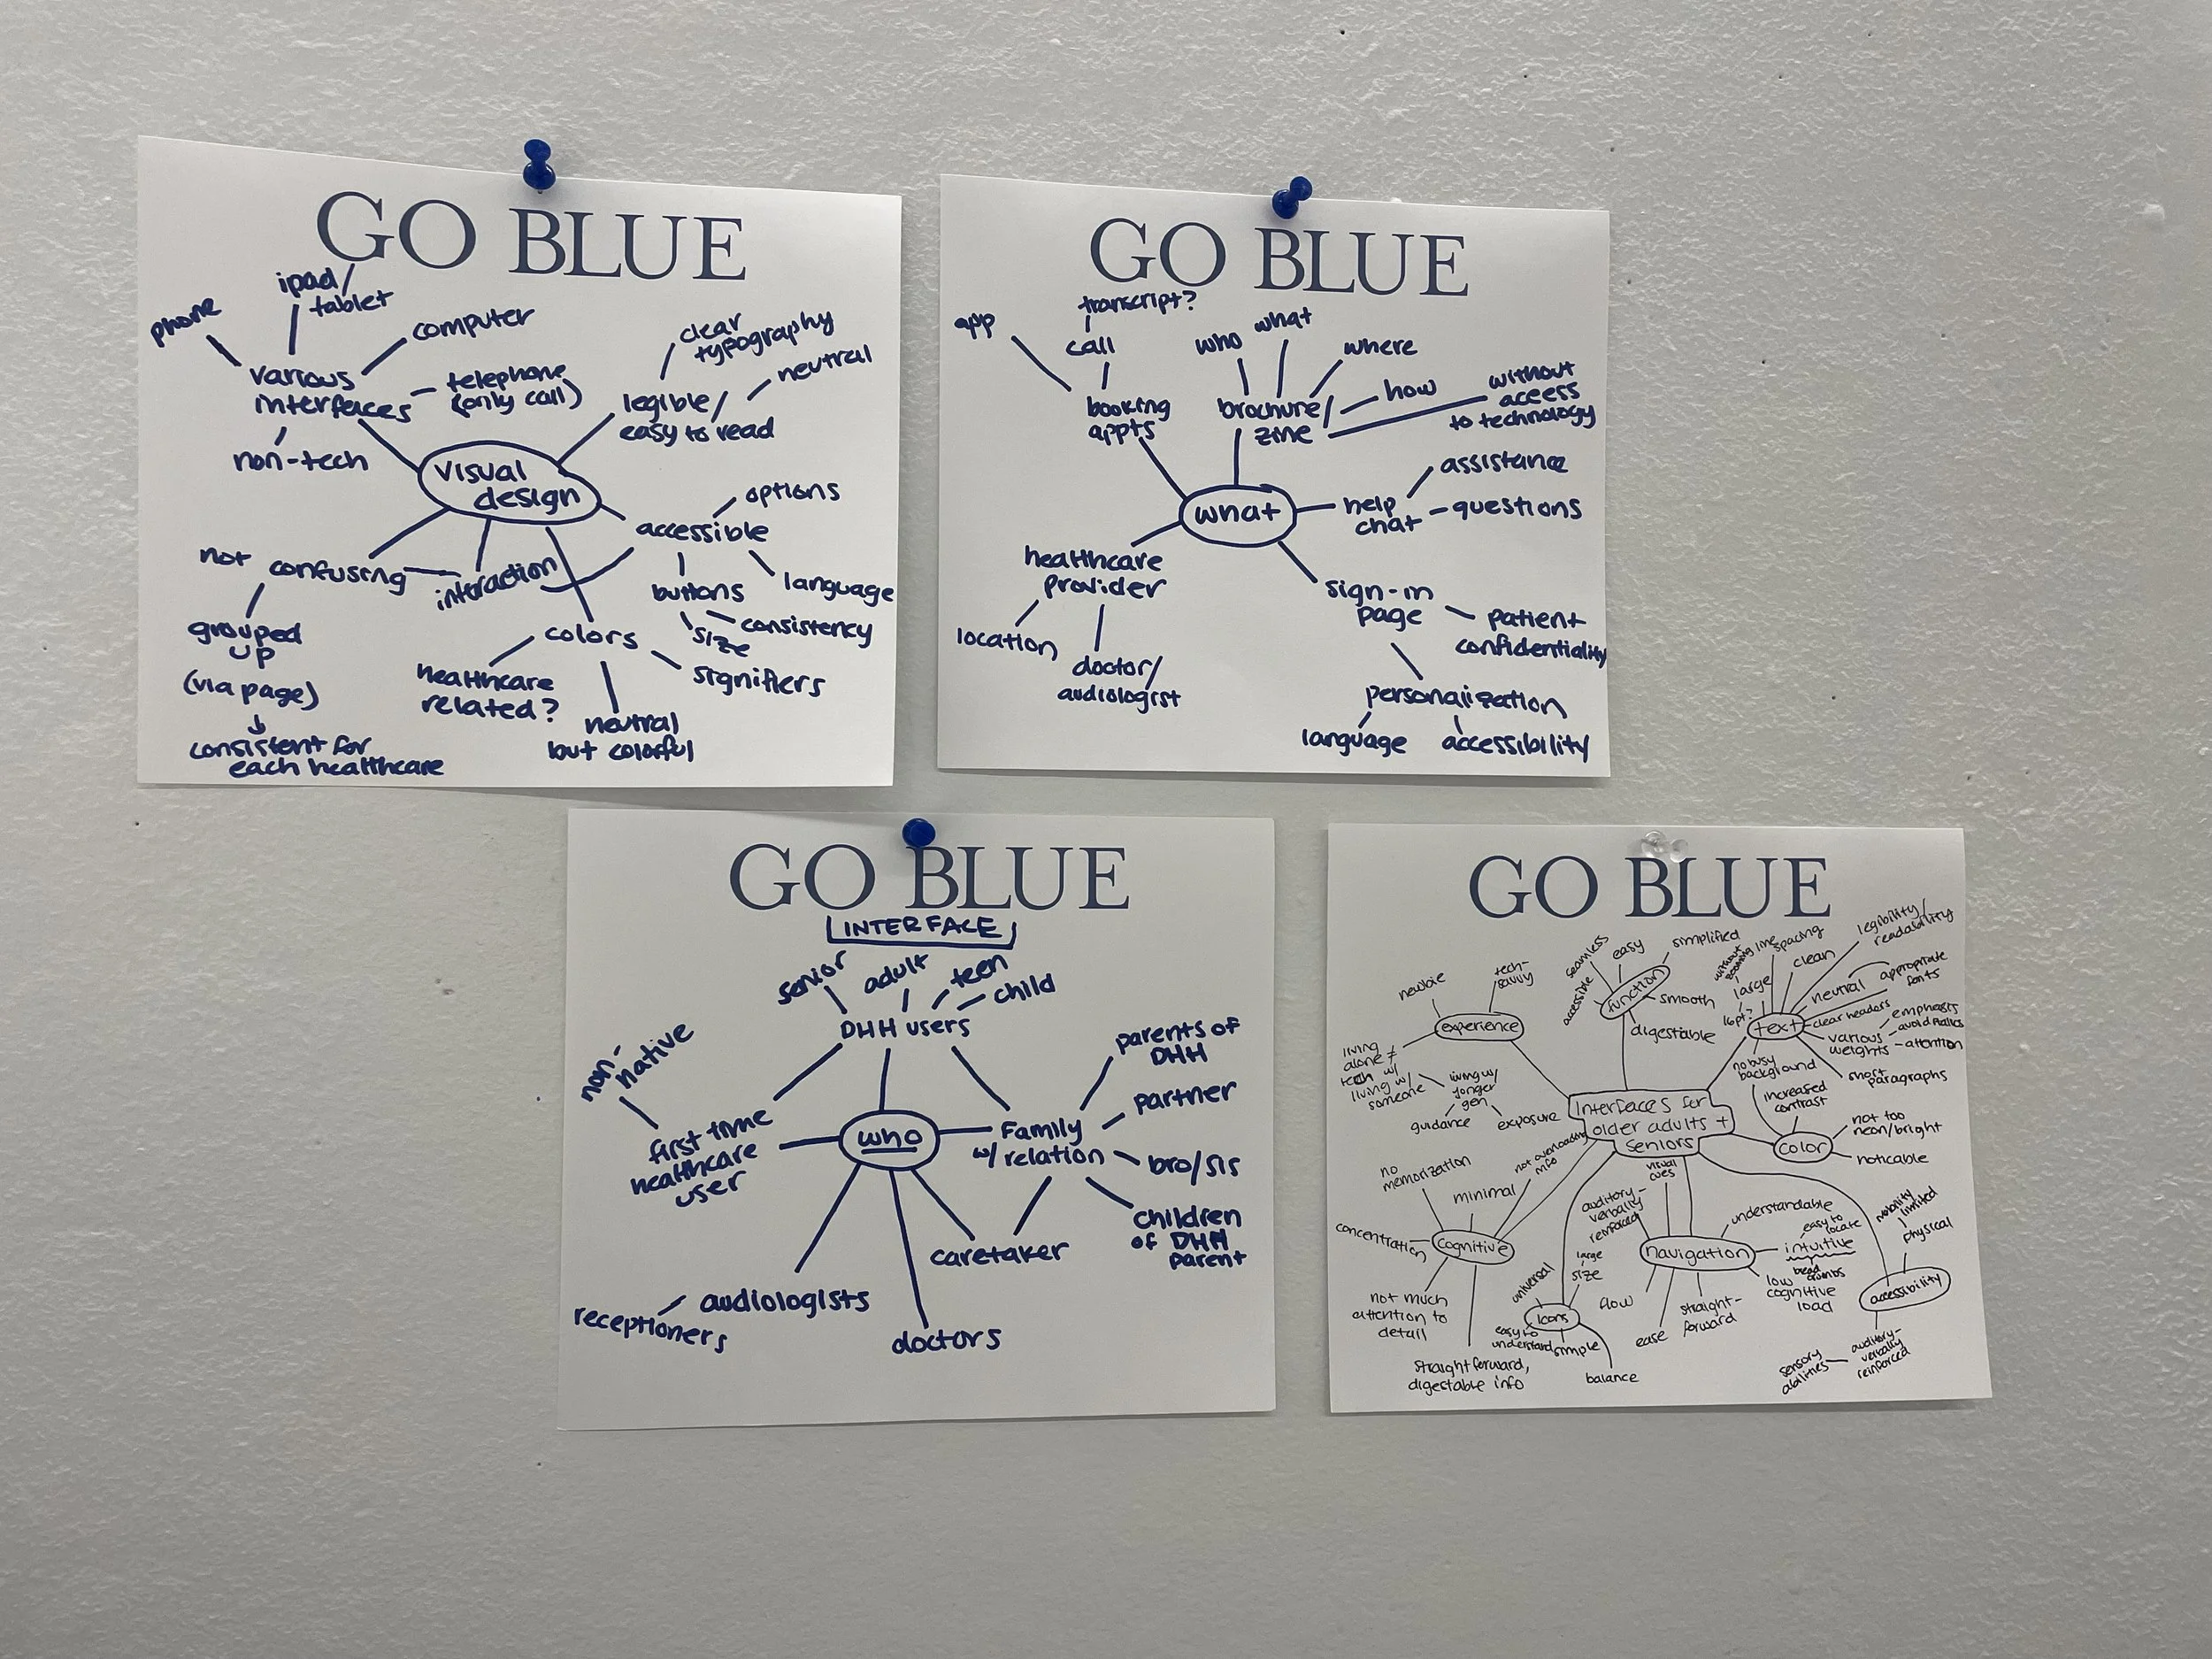 GO BLUE
phone
ipad/
tablet
computer
various
interfaces
telephone
(only call)
non-tech
clear
typography
neutral
legible/
easy to read
visual
design
options
accessible
language
buttons
size
consistency
not confusing
interaction
grouped
up
(via page)
consistent for
each healthcare
colors
healthcare
related?
neutral
but colorful
signifiers
GO BLUE
app
transcript?
call
booking
appts
who
what
where
how
brochure/
zine
without
access
to technology
what
help
chat
assistance
questions
healthcare
provider
location
doctor/
audiologist
sign-in
page
patient
confidentiality
personalization
language
accessibility
GO BLUE
INTERFACE
senior
adult
teen
child
DHH users
non-
native
first time
healthcare
user
who
Family
w/ relation
parents of
DHH
partner
bro/sis
children
of DHH
parent
caretaker
audiologists
receptioners
doctors
GO BLUE
Interfaces for
older adults +
seniors
experience
newbie
tech-
savvy
living
alone ≠
tech w/
living w/
someone
living w/
yonger
gen
guidance
exposure
function
accessible
seamless
easy
simplified
smooth
digestiable
text
16pt?
large
without
zooming
line
spacing
clean
legibility/
readability
neutral
appropriate
fonts
clear headers
various
weights
emphasis
avoid italics
attention
short
paragraphs
color
no busy
background
increased
contrast
not too
neon/bright
noticable
cognitive
no
memorization
minimal
not overloading
info
concentration
not much
attention to
detail
straight forward,
digestable info
icons
universal
large
size
easy to
understand
simple
balance
navigation
auditory-
verbally
reinforced
visual
cues
understandable
easy to
locate
intuitive
bread
crumbs
low
cognitive
load
flow
ease
straight-
forward
accessibility
mobility
limited
physical
auditory-
verbally
reinforced
sensory
abilities